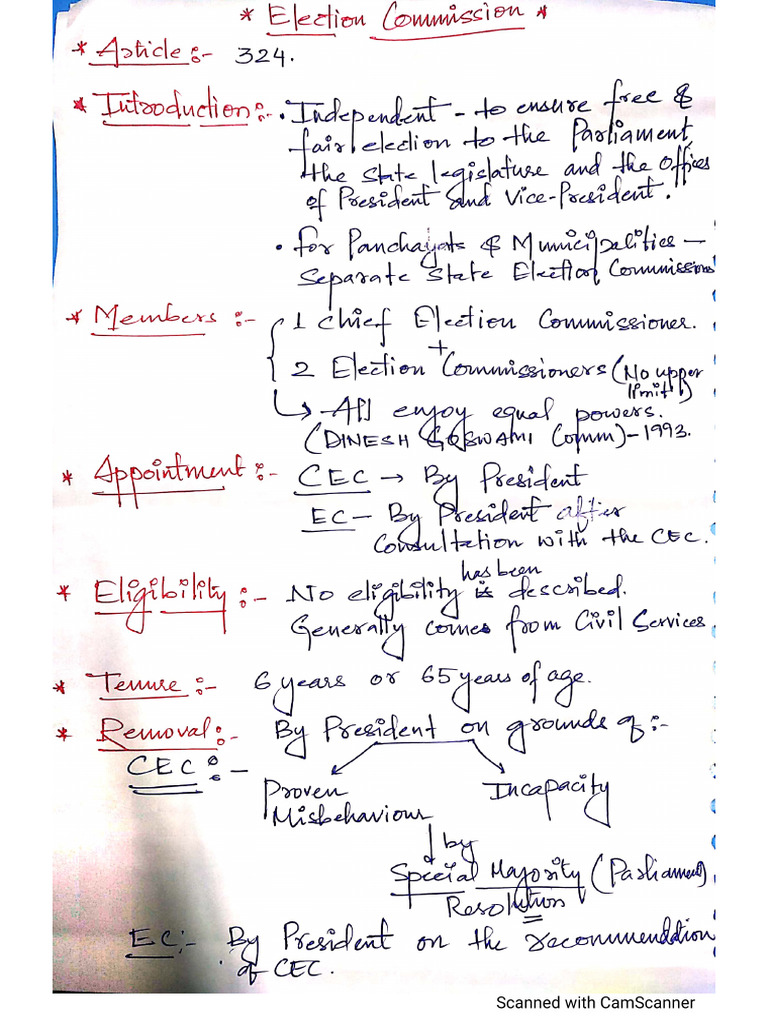 * Election Commission *
* Article :- 324.
* Introduction :- • Independent - to ensure free &
fair election to the Parliament,
the State legislature and the Offices
of President and Vice-President.
• for Panchayats & Municipalities –
Separate State Election Commissions
* Members :- 1 Chief Election Commissioner.
+
2 Election Commissioners (No upper
limit)
↳ All enjoy equal powers.
(DINESH GOSWAMI Comm) - 1993.
* Appointment :- CEC → By President
EC – By President after
Consultation with the CEC.
has been
* Eligibility :- No eligibility is described.
Generally comes from Civil Services.
* Tenure :- 6 years or 65 years of age.
* Removal :- By President on grounds of :-
CEC :-
Proven Incapacity
Misbehaviour
↓ by
Special Majority (Parliament)
Resolution
EC :- By President on the recommendation
of CEC.
Scanned with CamScanner